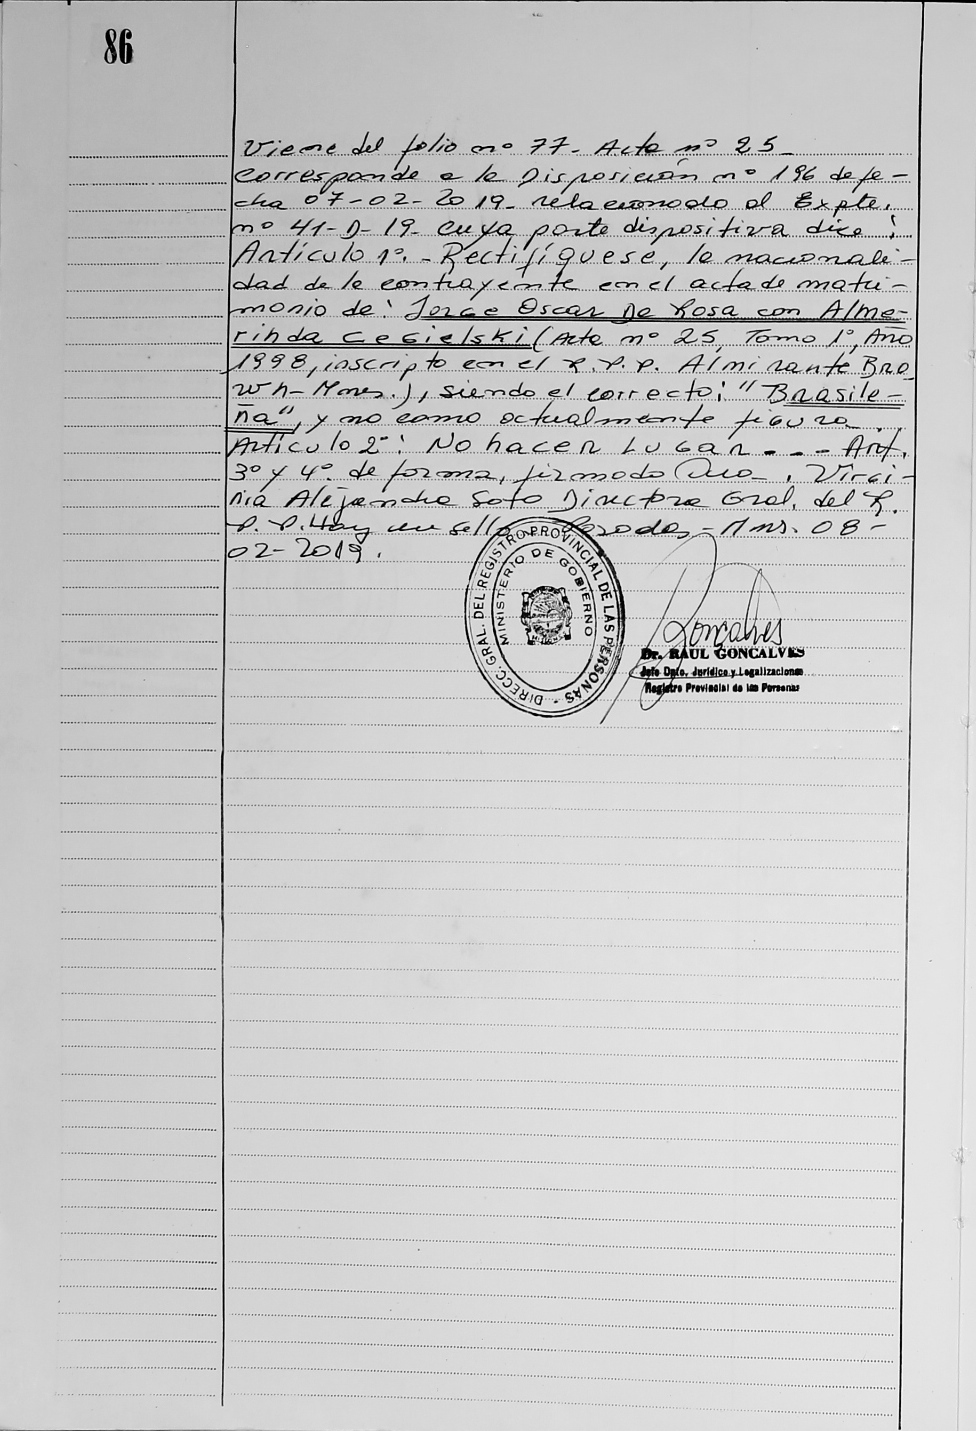 86
Viene del folio nº 77- Acta nº 25-
Corresponde a la Disposición nº 196 de fe-
cha 07-02-2019- relacionado al Expte.
nº 41-D-19- cuya parte dispositiva dice:
Artículo 1º.- Rectifíquese, la nacionali-
dad de la contrayente en el acta de matri-
monio de: Jorge Oscar De Rosa con Alme-
rinda Cegielski (Acta nº 25, Tomo 1º, Año
1998, inscripto en el R.P.P. Almirante Bro-
wn- Mnes.), siendo el correcto: "Brasile-
ña", y no como actualmente figura.
Artículo 2º: No hacer Lugar - - - Art.
3º y 4º de forma, firmado Dra. Virgi-
nia Alejandra Soto Directora Gral. del R.
P.P. Hay un sello Posadas- Mns. 08-
02-2019.
DIRECC. GRAL. DEL REGISTRO PROVINCIAL DE LAS PERSONAS -
MINISTERIO DE GOBIERNO
Goncalves
Dr. RAUL GONCALVES
Jefe Dpto. Jurídico y Legalizaciones
Registro Provincial de las Personas